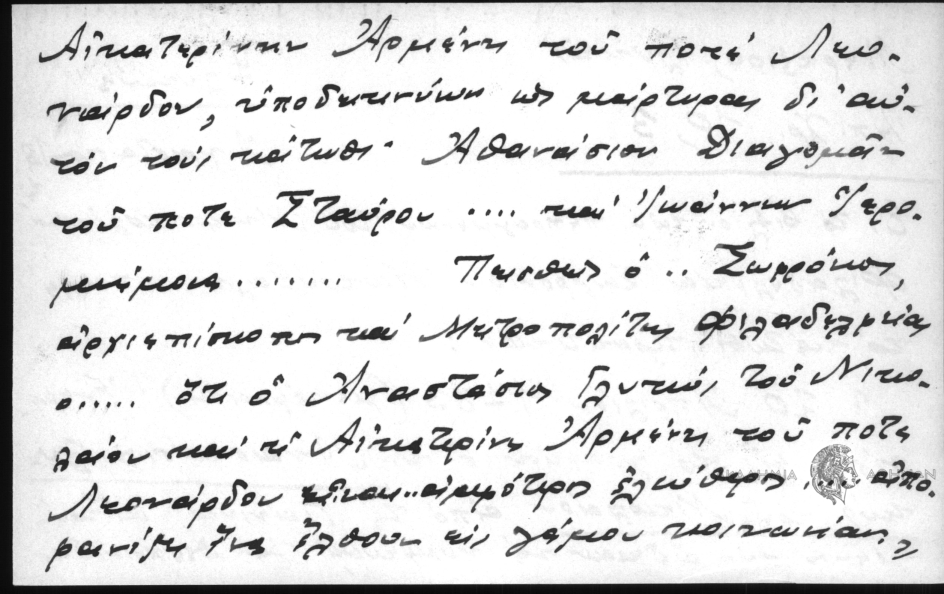 Αἰκατερίνην Ἀρμένη τοῦ ποτέ Λεο-
νάρδου, ὑποδεικνύων ὡς μάρτυρας δι' αὐ-
τόν τούς κάτωθι· Ἀθανάσιον Διαγομᾶν
τοῦ ποτε Σταύρου .... καί Ἰωάννην Ἱερο-
μνήμονα ........ Πεισθείς ὁ .. Σωφρόνιος,
ἀρχιεπίσκοπος καί Μητροπολίτης Φιλαδελφείας
..... ὅτι ὁ Ἀναστάσιος Γλυκύς τοῦ Νικο-
λάου καί ἡ Αἰκατερίνη Ἀρμένη τοῦ ποτε
Λεονάρδου εἶναι .. ἀμφότεροι ἐλεύθεροι .... ἀπο-
φασίζει ἵνα ἔλθουν εἰς γάμου κοινωνίαν,
ΑΚΑΔΗΜΙΑ ΑΘΗΝΩΝ